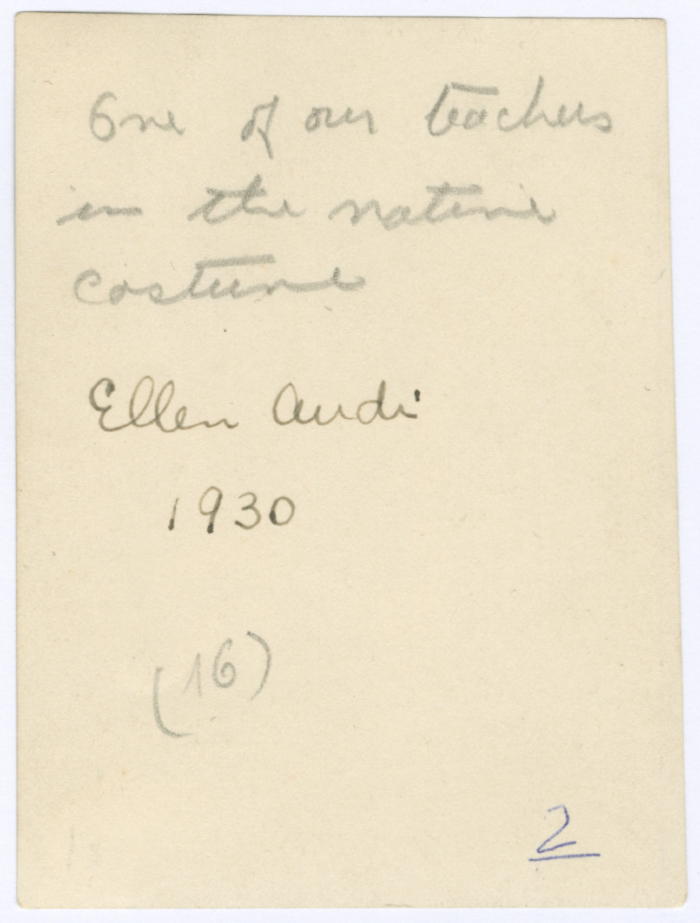 One of our teachers
in the native
costume
Ellen Audi
1930
(16)
2